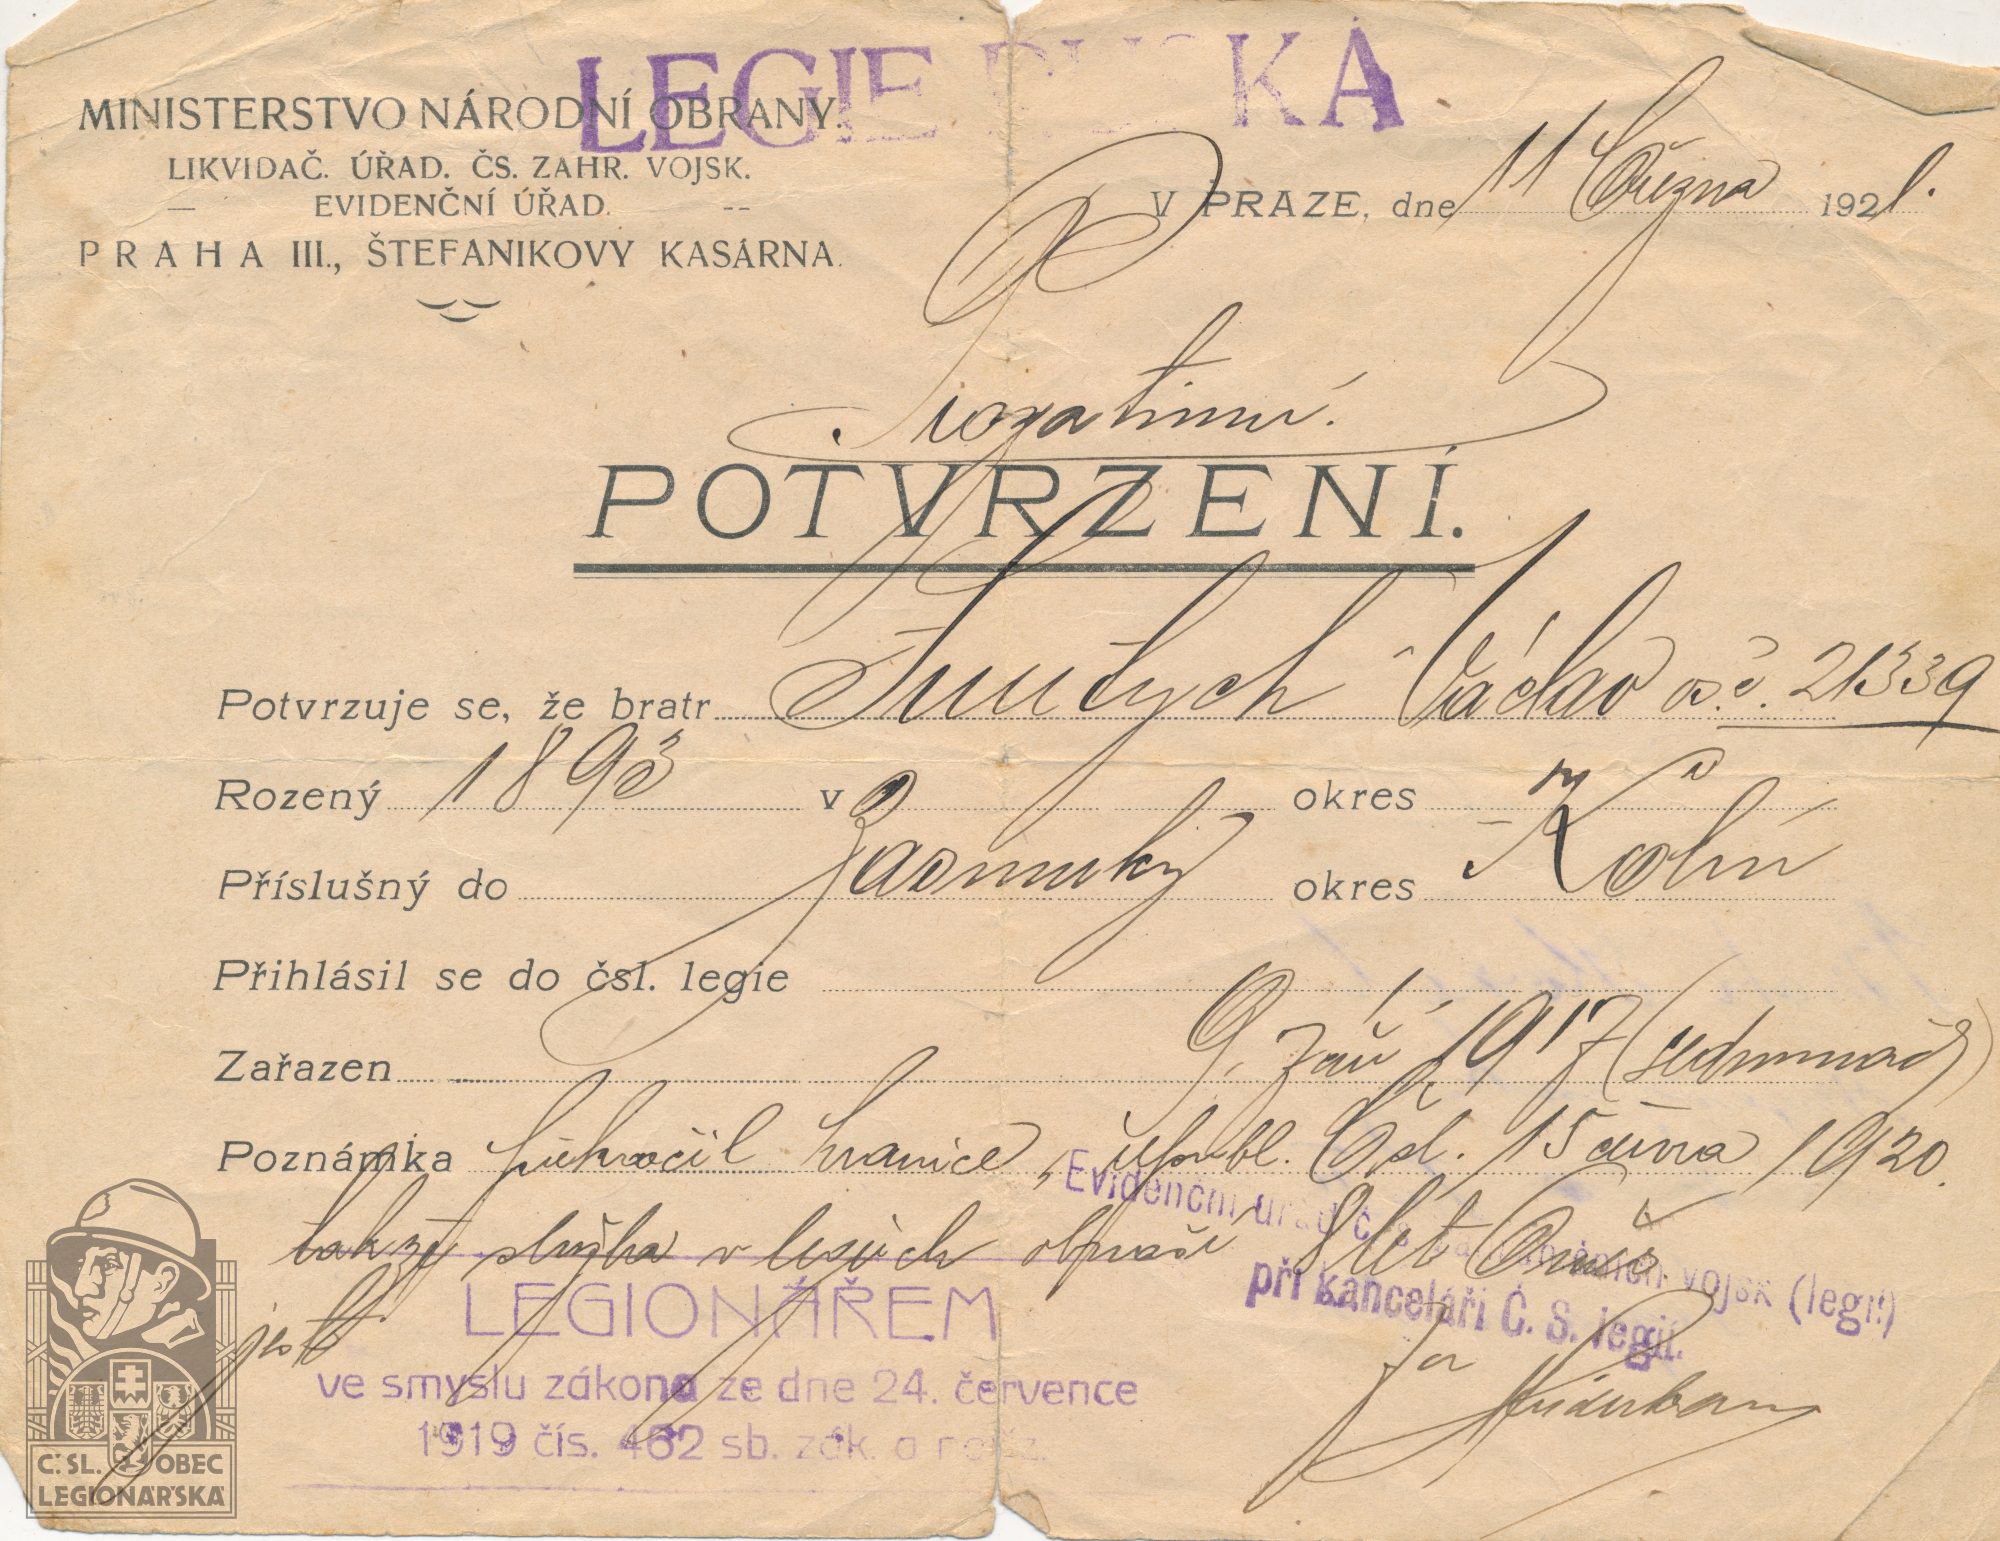 LEGIE RUSKÁ
MINISTERSTVO NÁRODNÍ OBRANY.
LIKVIDAČ. ÚŘAD. ČS. ZAHR. VOJSK.
EVIDENČNÍ ÚŘAD.
PRAHA III., ŠTEFANIKOVY KASÁRNA.
V PRAZE, dne 11 března 1921.
Prozatimní.
POTVRZENÍ.
Potvrzuje se, že bratr Václav os. č. 21339
Rozený 1893 v okres
Příslušný do Zásmuky okres Kolín
Přihlásil se do čsl. legie
Zařazen 9. září 1917 (sedmnáct)
Poznámka překročil hranice republ. Čsl. 15 února 1920.
takže služba v legiích
jest
LEGIONÁŘEM
ve smyslu zákona ze dne 24. července
1919 čís. 462 sb. zák. a nařiz.
Evidenční úřad vojsk (legií)
při kanceláři Č. S. legií.
Za
Č. SL. OBEC
LEGIONÁŘSKÁ